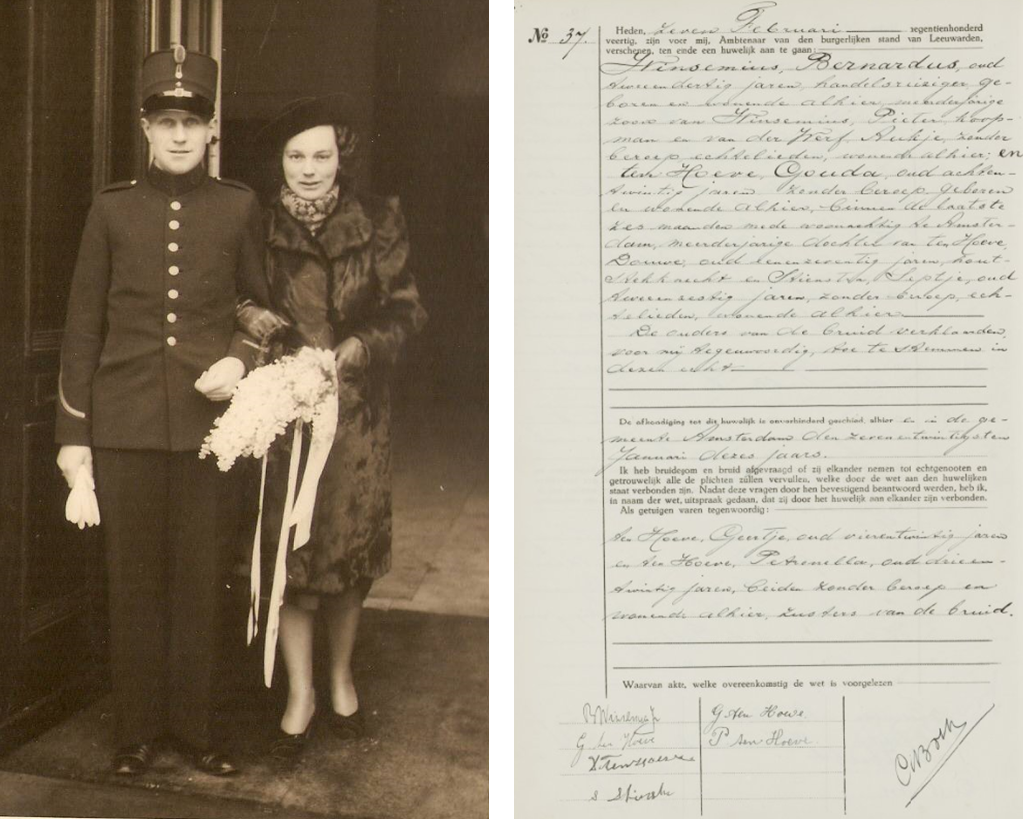 No 37.
Heden, zeven Februari negentienhonderd
veertig, zijn voor mij, Ambtenaar van den burgerlijken stand van Leeuwarden,
verschenen, ten einde een huwelijk aan te gaan:
Winsemius, Bernardus, oud
tweeendertig jaren, handelsreiziger, ge-
boren en wonende alhier, meerderjarige
zoon van Winsemius, Pieter, koop-
man en van der Werf, Aukje, zonder
beroep, echtelieden, wonende alhier; en
ten Hoeve, Gouda, oud achten-
twintig jaren, zonder beroep, geboren
en wonende alhier, binnen de laatste
zes maanden mede woonachtig te Amster-
dam, meerderjarige dochter van ten Hoeve,
Douwe, oud eenenzeventig jaren, hout-
en Stienstra, oud
tweeenzestig jaren, zonder beroep, ech-
telieden, wonende alhier.
De ouders van de bruid verklaarden,
voor mij tegenwoordig, toe te stemmen in
dezen echt
De afkondiging tot dit huwelijk is onverhinderd geschied, alhier en in de ge-
meente Amsterdam den zevenentwintigsten
Januari dezes jaars.
Ik heb bruidegom en bruid afgevraagd of zij elkander nemen tot echtgenooten en
getrouwelijk alle de plichten zullen vervullen, welke door de wet aan den huwelijken
staat verbonden zijn. Nadat deze vragen door hen bevestigend beantwoord werden, heb ik,
in naam der wet, uitspraak gedaan, dat zij door het huwelijk aan elkander zijn verbonden.
Als getuigen waren tegenwoordig:
ten Hoeve, Geertje, oud vierentwintig jaren
en ten Hoeve, Petronella, oud drieen-
twintig jaren, beiden zonder beroep en
wonende alhier, zusters van de bruid.
Waarvan akte, welke overeenkomstig de wet is voorgelezen
G ten Hoeve
G ten Hoeve
P ten Hoeve
D ten Hoeve